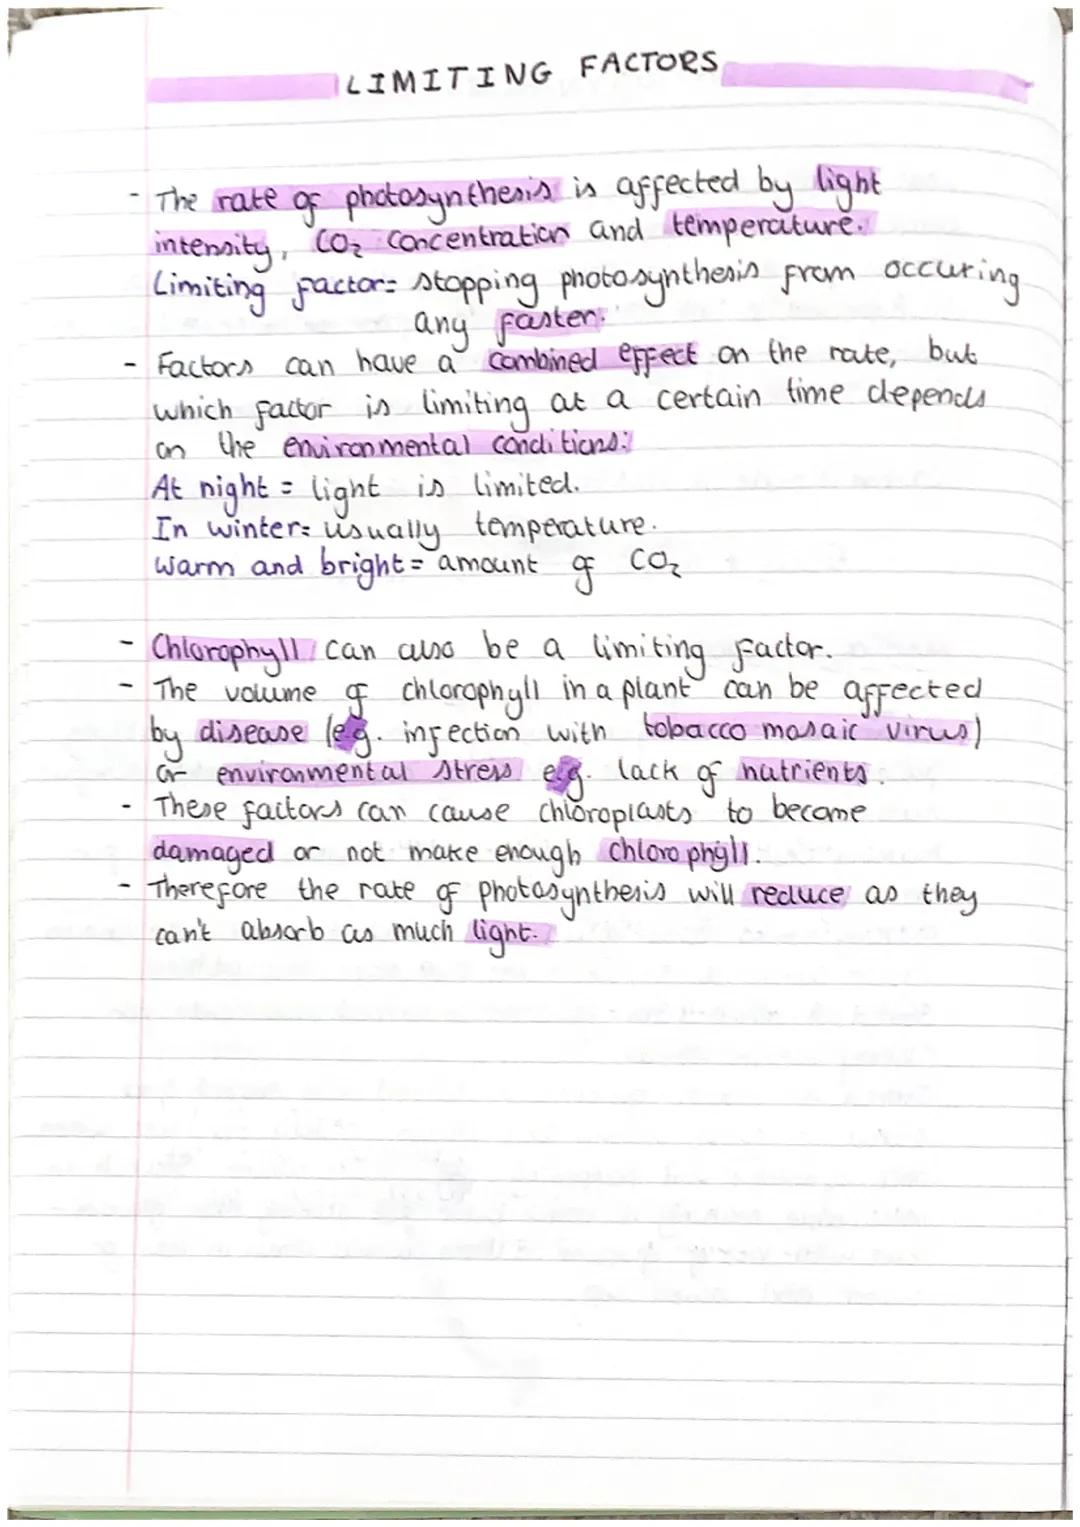 LIMITING FACTORS
- The rate of photosynthesis is affected by light
intensity, CO₂ concentration and temperature.
Limiting factor= stopping photosynthesis from occuring
any faster.
- Factors can have a combined effect on the rate, but
which factor is limiting at a certain time depends
on the environmental conditions:
At night = light is limited.
In winter= usually temperature.
Warm and bright = amount of CO₂
- Chlorophyll can also be a limiting factor.
- The volume of chlorophyll in a plant can be affected
by disease (eg. infection with tobacco mosaic virus)
or environmental stress eg. lack of nutrients.
- These factors can cause chloroplasts to become
damaged or not make enough chlorophyll.
- Therefore the rate of photosynthesis will reduce as they
can't absorb as much light.